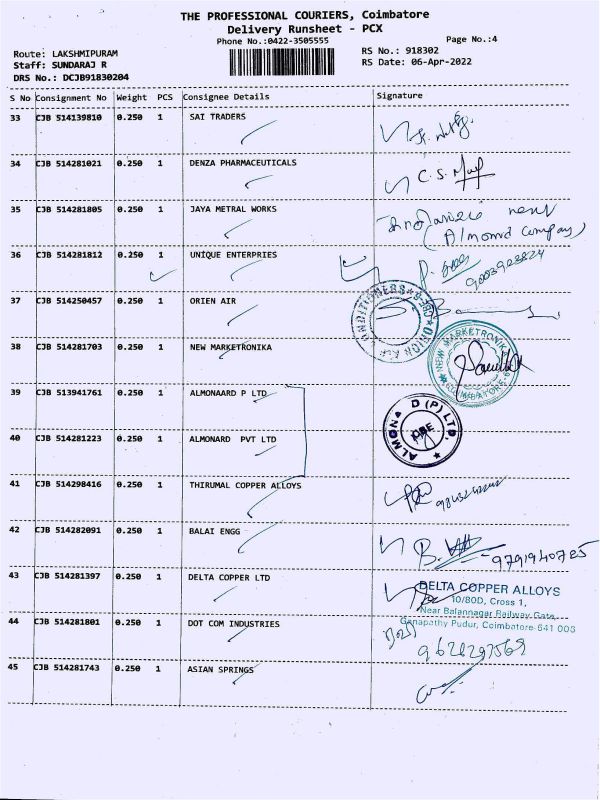 THE PROFESSIONAL COURIERS, Coimbatore
Delivery Runsheet - PCX
Phone No.:0422-3505555
Page No.:4
Route: LAKSHMIPURAM
RS No.: 918302
Staff: SUNDARAJ R
RS Date: 06-Apr-2022
DRS No.: DCJB91830204
S No Consignment No Weight PCS Consignee Details Signature
33 CJB 514139810 0.250 1 SAI TRADERS
34 CJB 514281021 0.250 1 DENZA PHARMACEUTICALS C.S.
35 CJB 514281805 0.250 1 JAYA METRAL WORKS
(Almond Company)
36 CJB 514281812 0.250 1 UNIQUE ENTERPRIES
9003923824
37 CJB 514250457 0.250 1 ORIEN AIR
ORION AIR CONDITIONERS CBE-6
38 CJB 514281703 0.250 1 NEW MARKETRONIKA
NEW MARKETRONIKA COIMBATORE
39 CJB 513941761 0.250 1 ALMONAARD P LTD
ALMONA D (P) LTD, CBE
40 CJB 514281223 0.250 1 ALMONARD PVT LTD
41 CJB 514298416 0.250 1 THIRUMAL COPPER ALLOYS
42 CJB 514282091 0.250 1 BALAI ENGG B. 9791940725
43 CJB 514281397 0.250 1 DELTA COPPER LTD
DELTA COPPER ALLOYS
10/80D, Cross 1,
Near Balannagar Railway Gate,
Ganapathy Pudur, Coimbatore-641 006
44 CJB 514281801 0.250 1 DOT COM INDUSTRIES
45 CJB 514281743 0.250 1 ASIAN SPRINGS